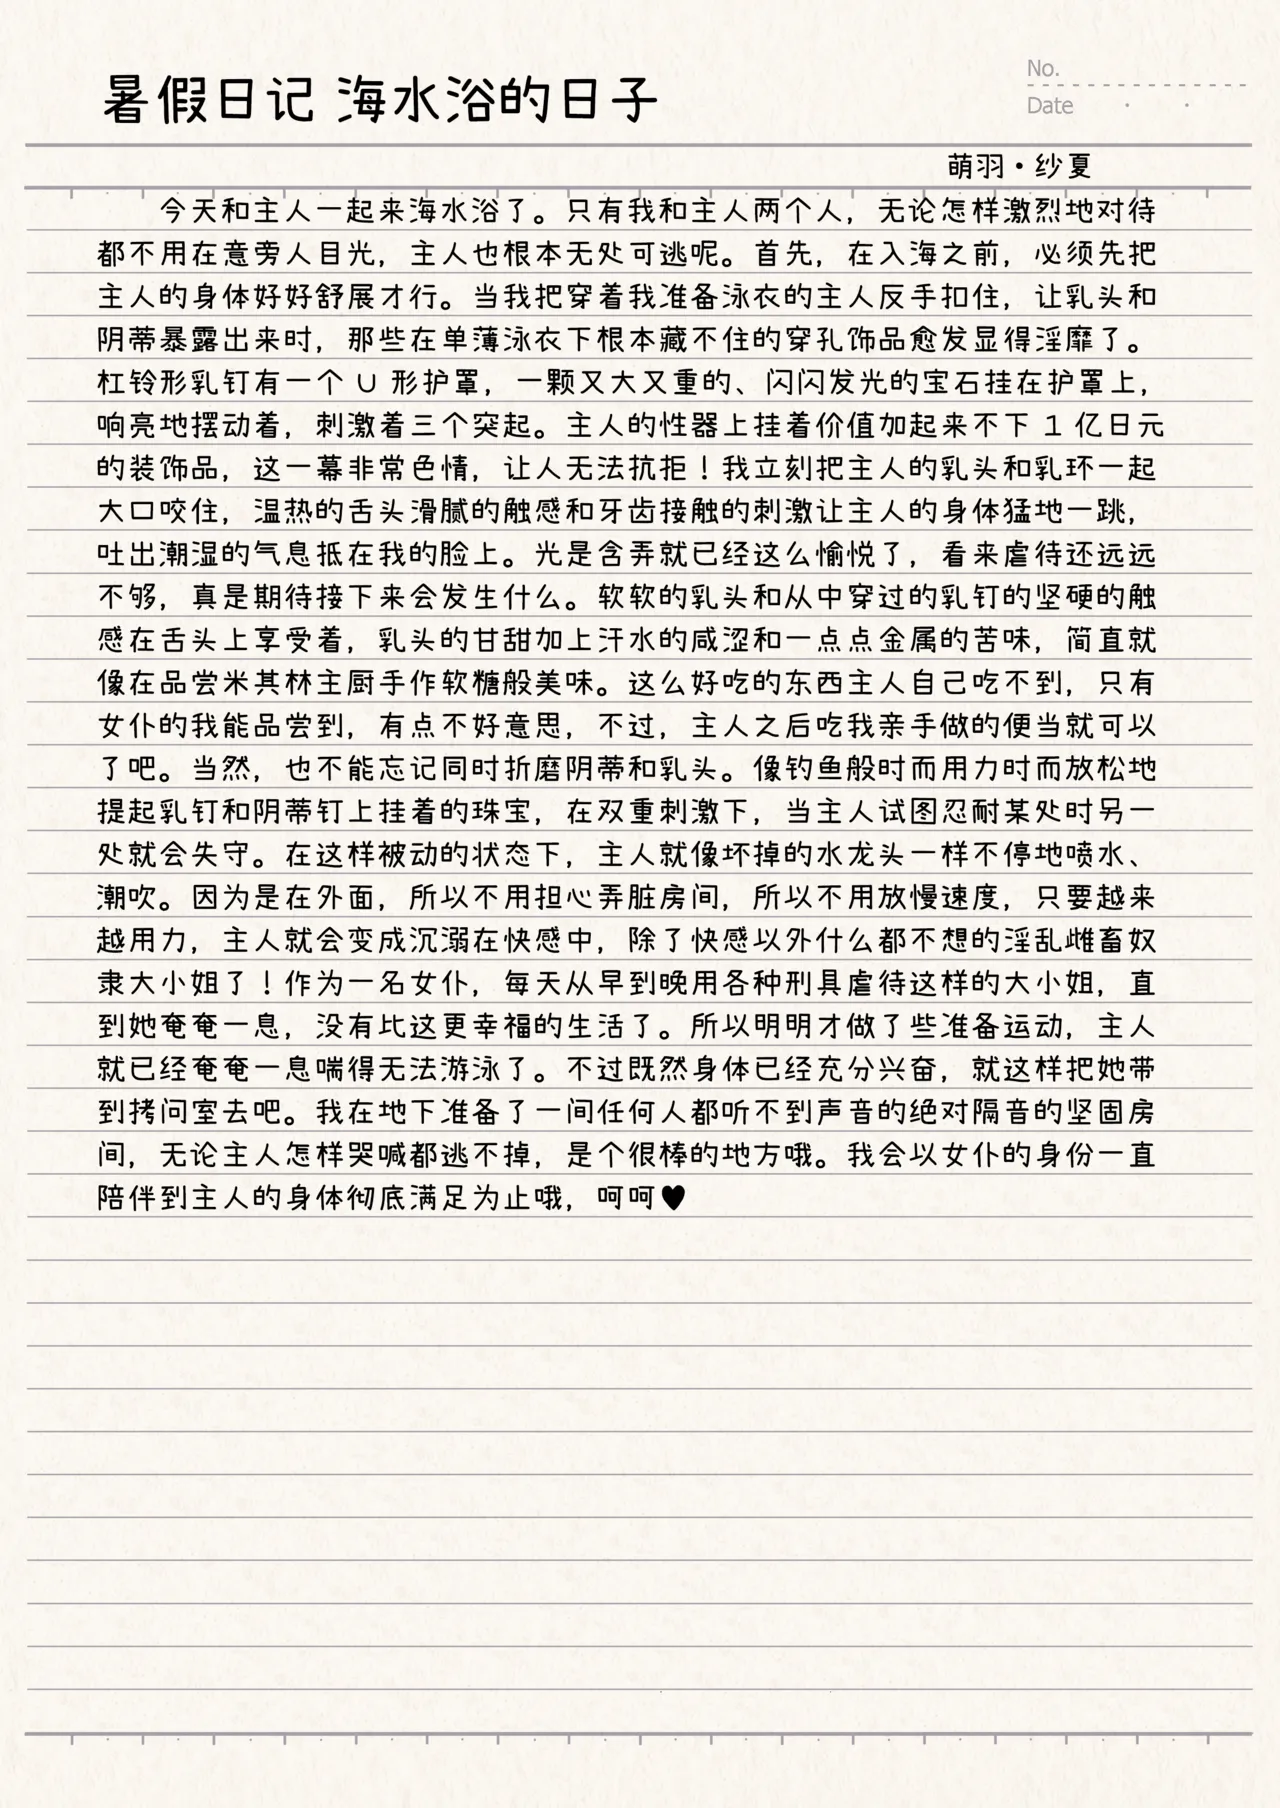 暑假日记 海水浴的日子
No.
Date
萌羽·纱夏
今天和主人一起来海水浴了。只有我和主人两个人，无论怎样激烈地对待
都不用在意旁人目光，主人也根本无处可逃呢。首先，在入海之前，必须先把
主人的身体好好舒展才行。当我把穿着我准备泳衣的主人反手扣住，让乳头和
阴蒂暴露出来时，那些在单薄泳衣下根本藏不住的穿孔饰品愈发显得淫靡了。
杠铃形乳钉有一个 U 形护罩，一颗又大又重的、闪闪发光的宝石挂在护罩上，
响亮地摆动着，刺激着三个突起。主人的性器上挂着价值加起来不下 1 亿日元
的装饰品，这一幕非常色情，让人无法抗拒！我立刻把主人的乳头和乳环一起
大口咬住，温热的舌头滑腻的触感和牙齿接触的刺激让主人的身体猛地一跳，
吐出潮湿的气息抵在我的脸上。光是含弄就已经这么愉悦了，看来虐待还远远
不够，真是期待接下来会发生什么。软软的乳头和从中穿过的乳钉的坚硬的触
感在舌头上享受着，乳头的甘甜加上汗水的咸涩和一点点金属的苦味，简直就
像在品尝米其林主厨手作软糖般美味。这么好吃的东西主人自己吃不到，只有
女仆的我能品尝到，有点不好意思，不过，主人之后吃我亲手做的便当就可以
了吧。当然，也不能忘记同时折磨阴蒂和乳头。像钓鱼般时而用力时而放松地
提起乳钉和阴蒂钉上挂着的珠宝，在双重刺激下，当主人试图忍耐某处时另一
处就会失守。在这样被动的状态下，主人就像坏掉的水龙头一样不停地喷水、
潮吹。因为是在外面，所以不用担心弄脏房间，所以不用放慢速度，只要越来
越用力，主人就会变成沉溺在快感中，除了快感以外什么都不想的淫乱雌畜奴
隶大小姐了！作为一名女仆，每天从早到晚用各种刑具虐待这样的大小姐，直
到她奄奄一息，没有比这更幸福的生活了。所以明明才做了些准备运动，主人
就已经奄奄一息喘得无法游泳了。不过既然身体已经充分兴奋，就这样把她带
到拷问室去吧。我在地下准备了一间任何人都听不到声音的绝对隔音的坚固房
间，无论主人怎样哭喊都逃不掉，是个很棒的地方哦。我会以女仆的身份一直
陪伴到主人的身体彻底满足为止哦，呵呵♥